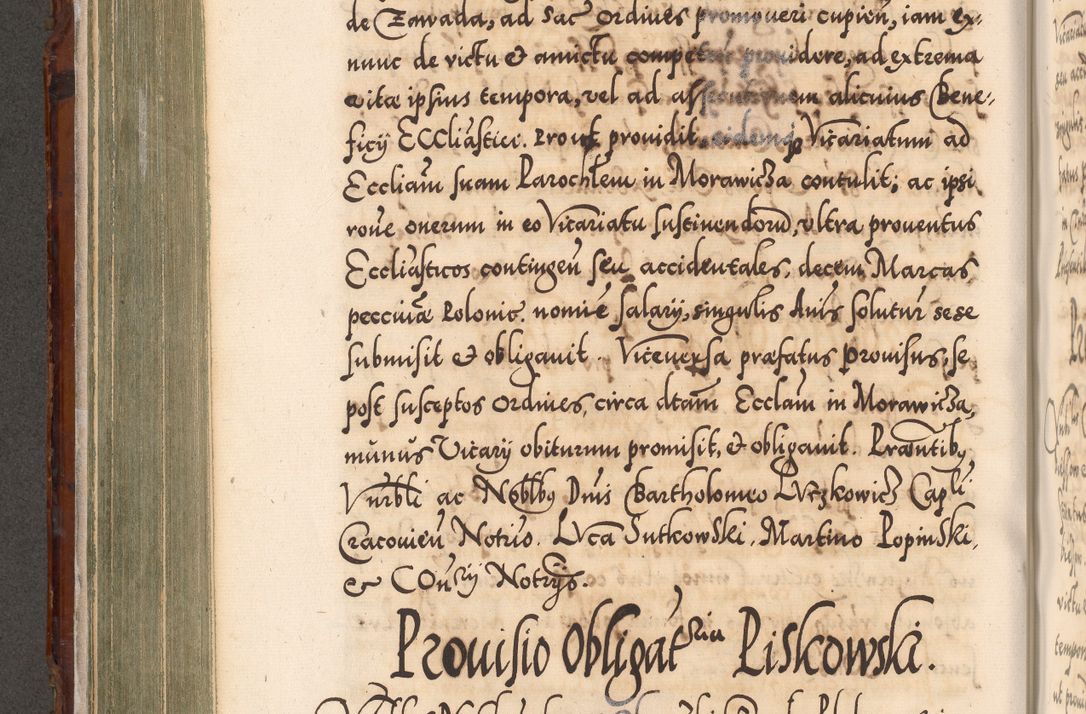 de Zawada, ad Sac Ordines promoveri cupien, iam ex-
nunc de victu & amictu competen providere, ad extrema
vitæ ipsius tempora, vel ad alicuius Bene-
ficÿ Eccliastici. Prout providit, eidemq Vicariatum ad
Eccliam suam Parochlem in Morawicza contulit; ac ipsi
rone onerum in eo Vicariatu sustinendorũ, ultra proventus
Eccliasticos contingen seu accidentales, decem Marcas
peccuiã Polonic. nomie salarÿ, singulis Anis solutur sese
submisit & obligavit. Viceversa præfatus Provisus, se
post susceptos Ordines, circa dtam Ecclam in Morawicza,
munus Vicarÿ obiturum promisit, & obligavit. Præntibq
Vnrbli ac Nobllbq Dnis Bartholomeo Luczkowicz Capli
Cracovien Notrio. Luca Sutkowski, Martino Popinski,
& COnrÿ Notrÿs.
Provisio Obligatria Piskowski.